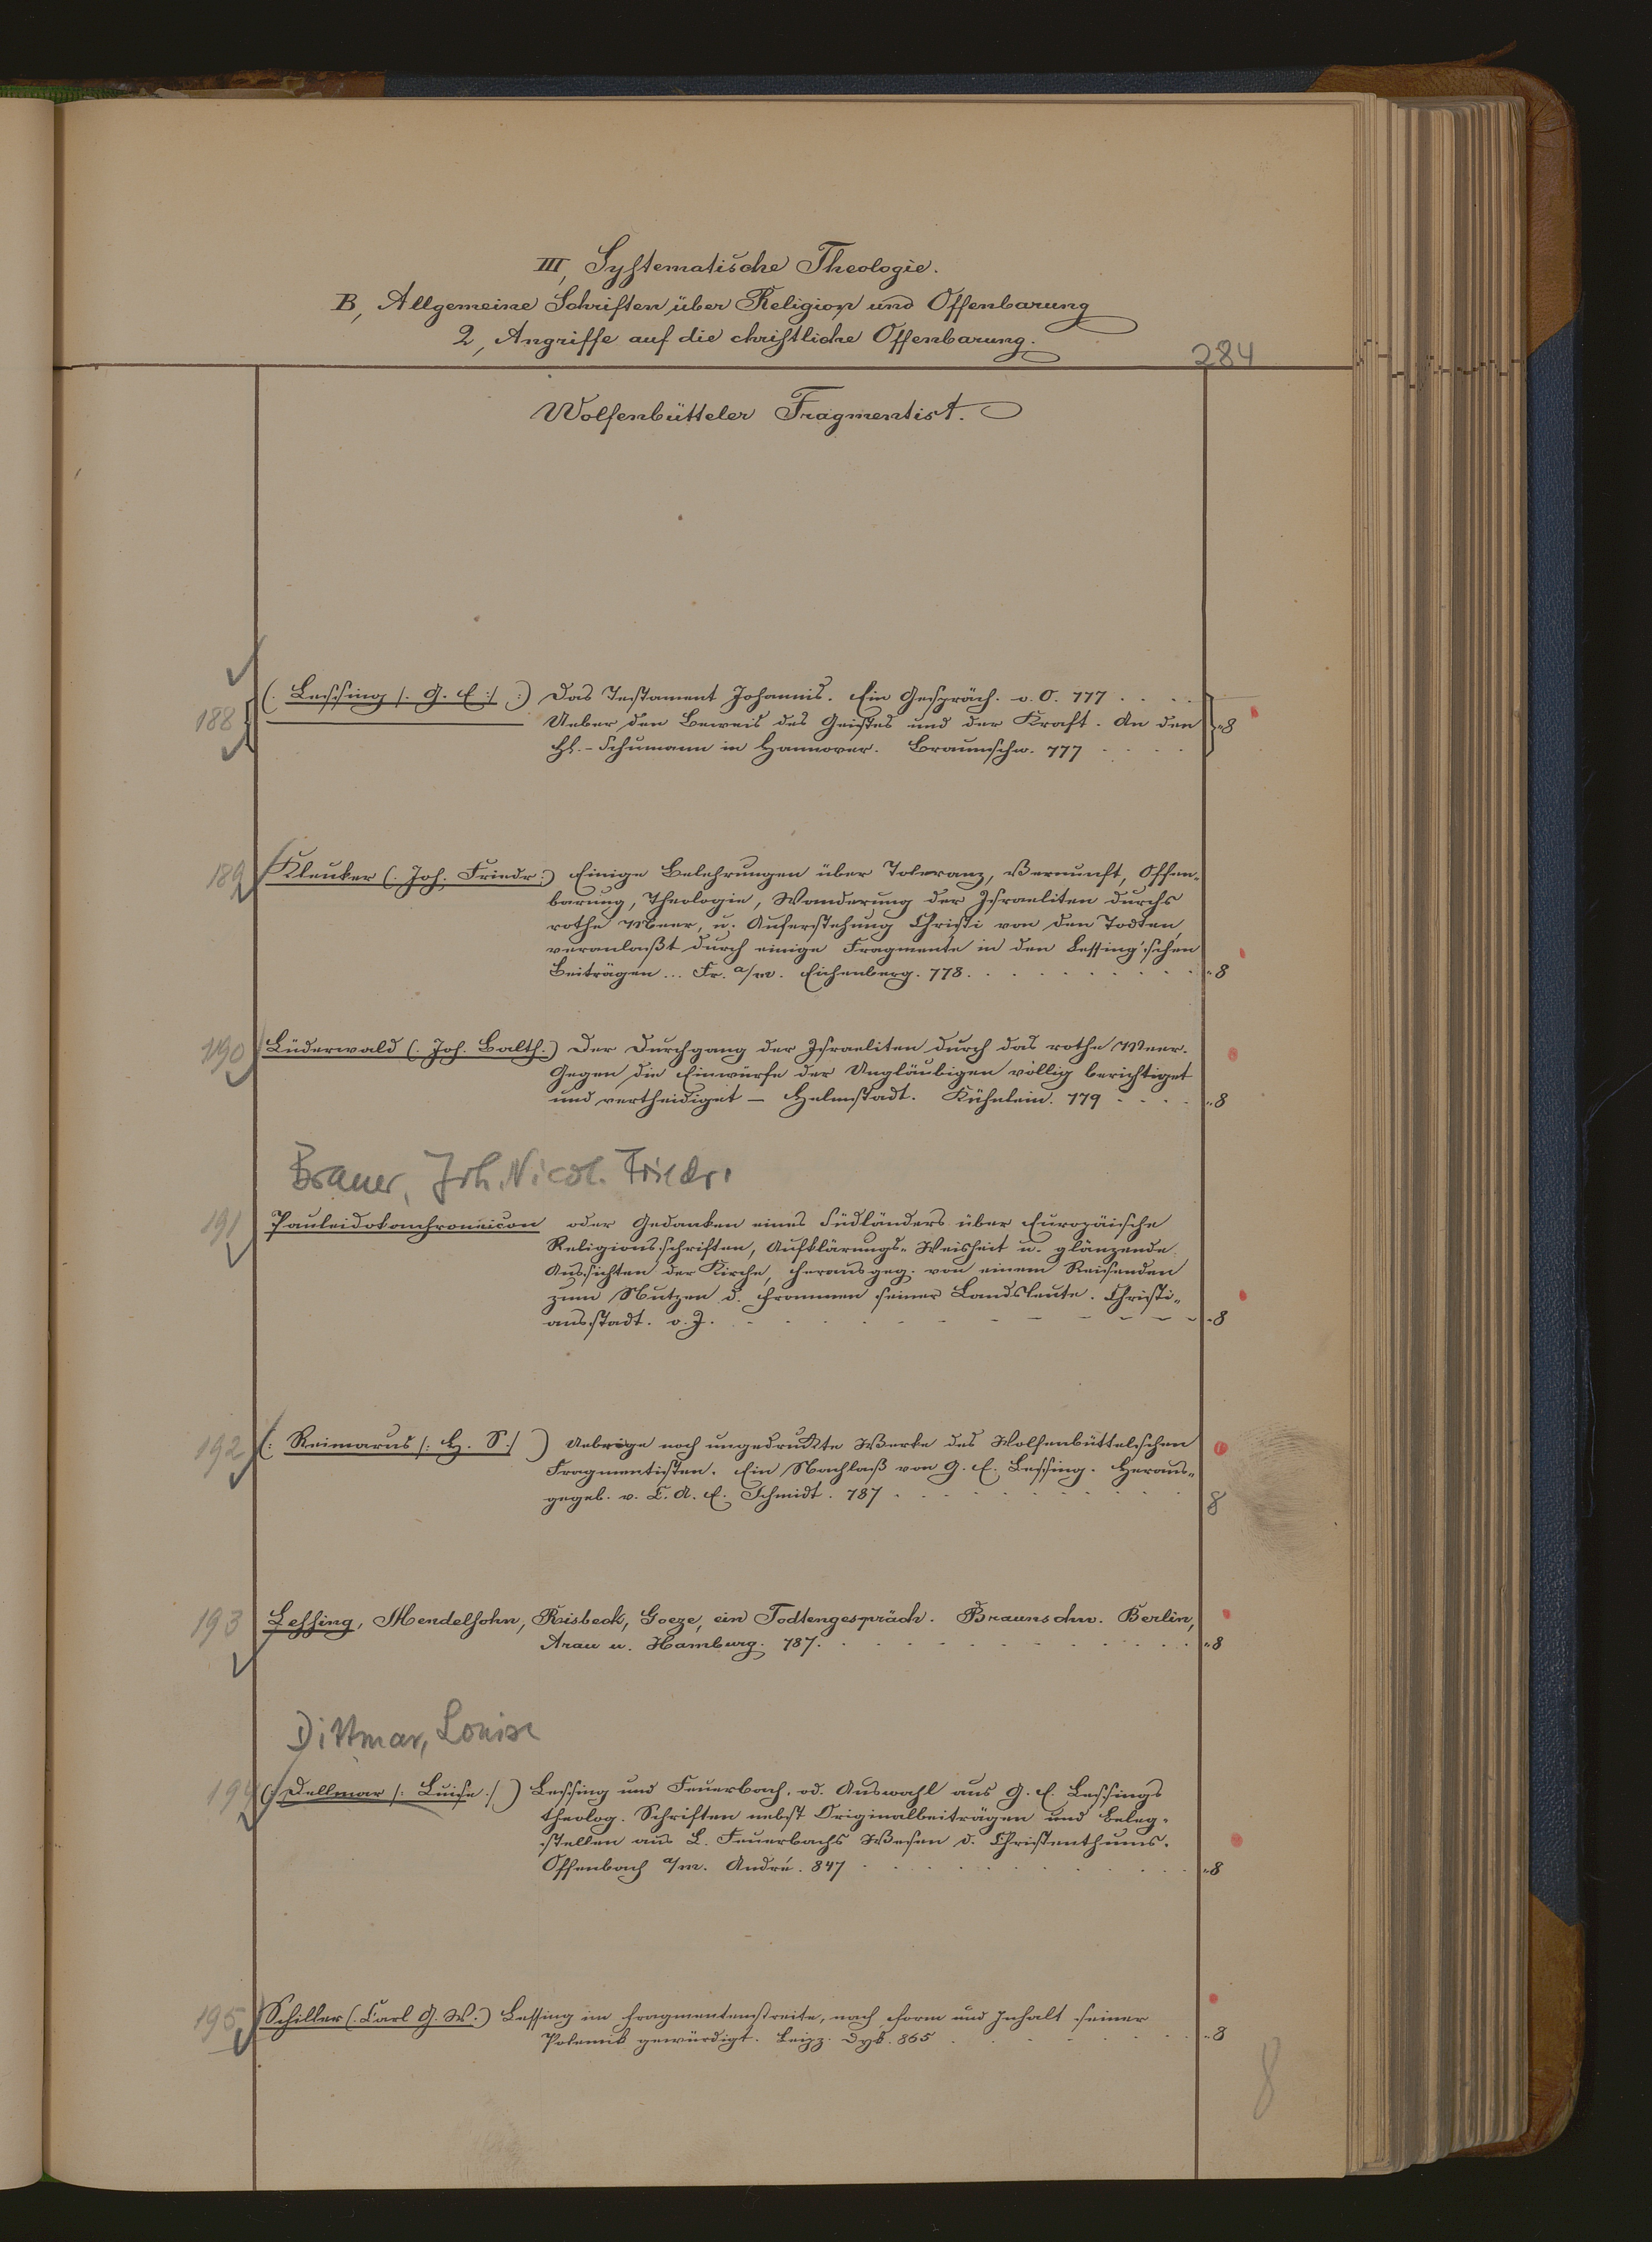 III, Systematische Theologie.
B, Allgemeine Schriften über Religion und Offenbarung
2, Angriffe auf die christliche Offenbarung.
284
Wolfenbütteler Fragmentist.
188 (: Lessing /: G. E :/ :) Das Testament Johannis. Ein Gespräch. o. O. 777 . . . .
Ueber den Beweis des Geistes und der Kraft. An den "8
H. - Schumann in Hannover. Braunschw. 777 . . . .
189 Kleuker (: Joh. Friedr :) Einige Belehrungen über Toleranz, Vernunft, Offen-
barung, Theologie, Wanderung der Israeliten durchs
rothe Meer, u. Auferstehung Christi von den Todten,
veranlaßt durch einige Fragmente in den Lessing'schen
Beiträgen ... Fr. a/m. Eichenberg. 778. . . . . "8
190 Lüderwald (: Joh. Balth. :) Der Durchgang der Israeliten durch das rothe Meer.
Gegen die Einwürfe der Ungläubigen völlig berichtiget
und vertheidiget — Helmstadt. Kühnlein. 779 . . . . "8
Brauer, Joh. Nicol. Friedr.
191 Pauleidokonchronicon oder Gedanken eines Südländers über Europäische
Religionsschriften, Aufklärungs-Weisheit u. glänzende
Aussichten der Kirche, herausgeg. von einem Reisenden
zum Nutzen d. frommen seiner Landsleute. Christi-
ansstadt. o. J. . . . . "8
192 (: Reimarus /: H. S :/ ) Uebrige noch ungedruckte Werke des Wolfenbüttelschen
Fragmentisten. Ein Nachlaß von G. E. Lessing. Heraus-
gegeb. v. C. A. E. Schmidt. 787 . . . . 8
193 Lessing, Mendelsohn, Risbeck, Goeze, ein Todtengespräch. Braunschw. Berlin,
Arau u. Hamburg. 787. . . . . "8
Dittmar, Louise
194 (: Dellmar /: Luise :/ ) Lessing und Feuerbach, od. Auswahl aus G. E. Lessings
theolog. Schriften nebst Originalbeiträgen und Beleg-
stellen aus L. Feuerbachs Wesen d. Christenthums.
Offenbach a/m. André. 847 . . . . "8
195 Schiller (: Carl G. W. :) Lessing im Fragmentenstreite, nach Form und Inhalt seiner
Polemik gewürdigt. Leipz. Dyk. 865 . . . . "8
8